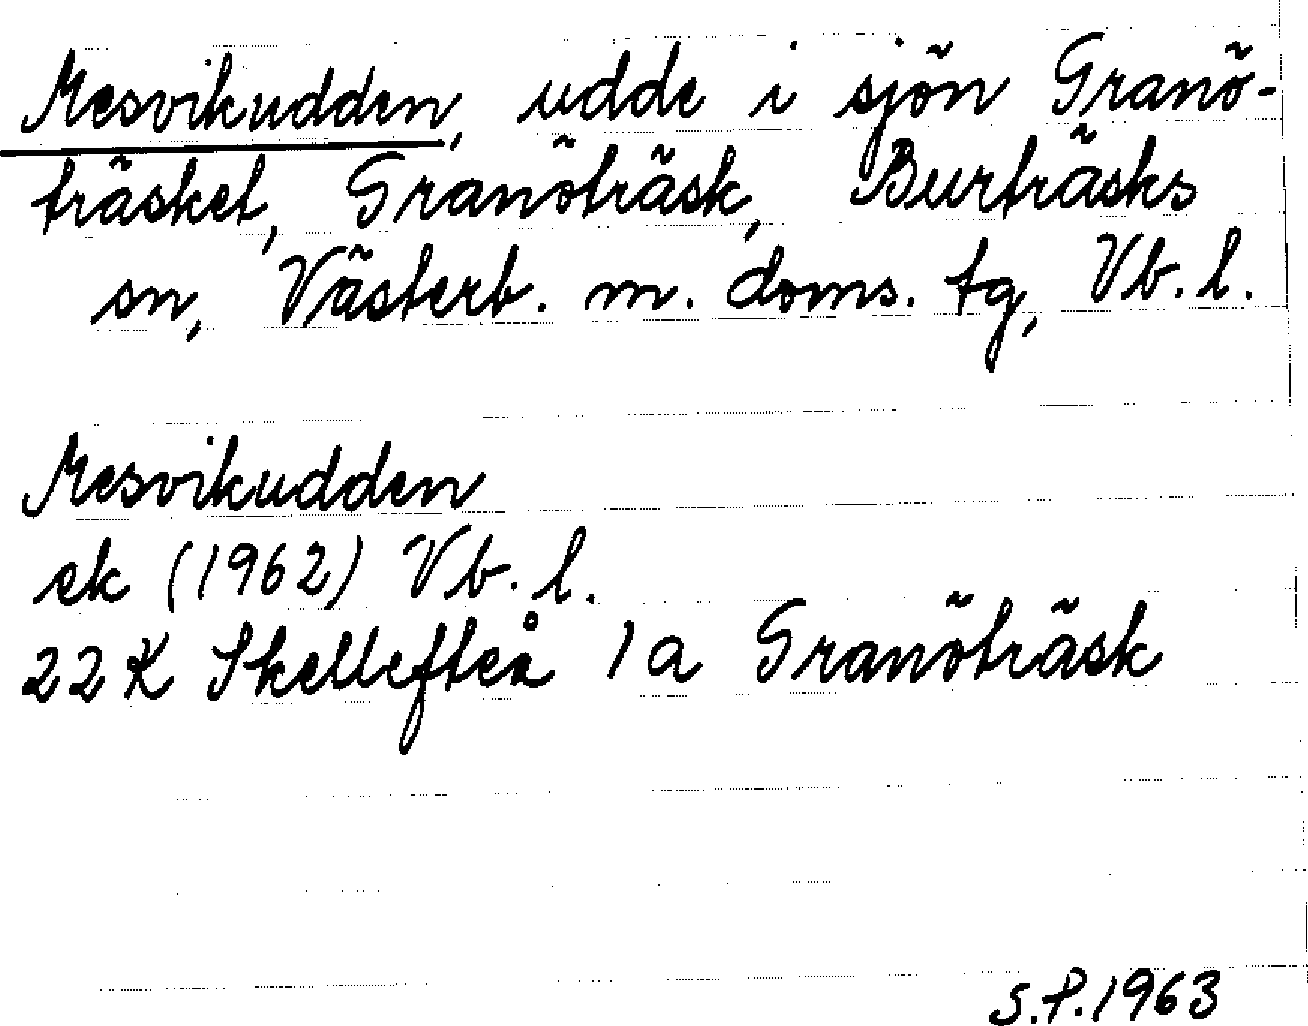 Mesvikudden, udde i sjön Granö-
träsket, Granöträsk, Burträsks
sn, Västerb. m. doms. tg, Vb. l.
Mesvikudden
ek (1962) Vb. l.
22 K Skellefteå 1 a Granöträsk
S.P. 1963